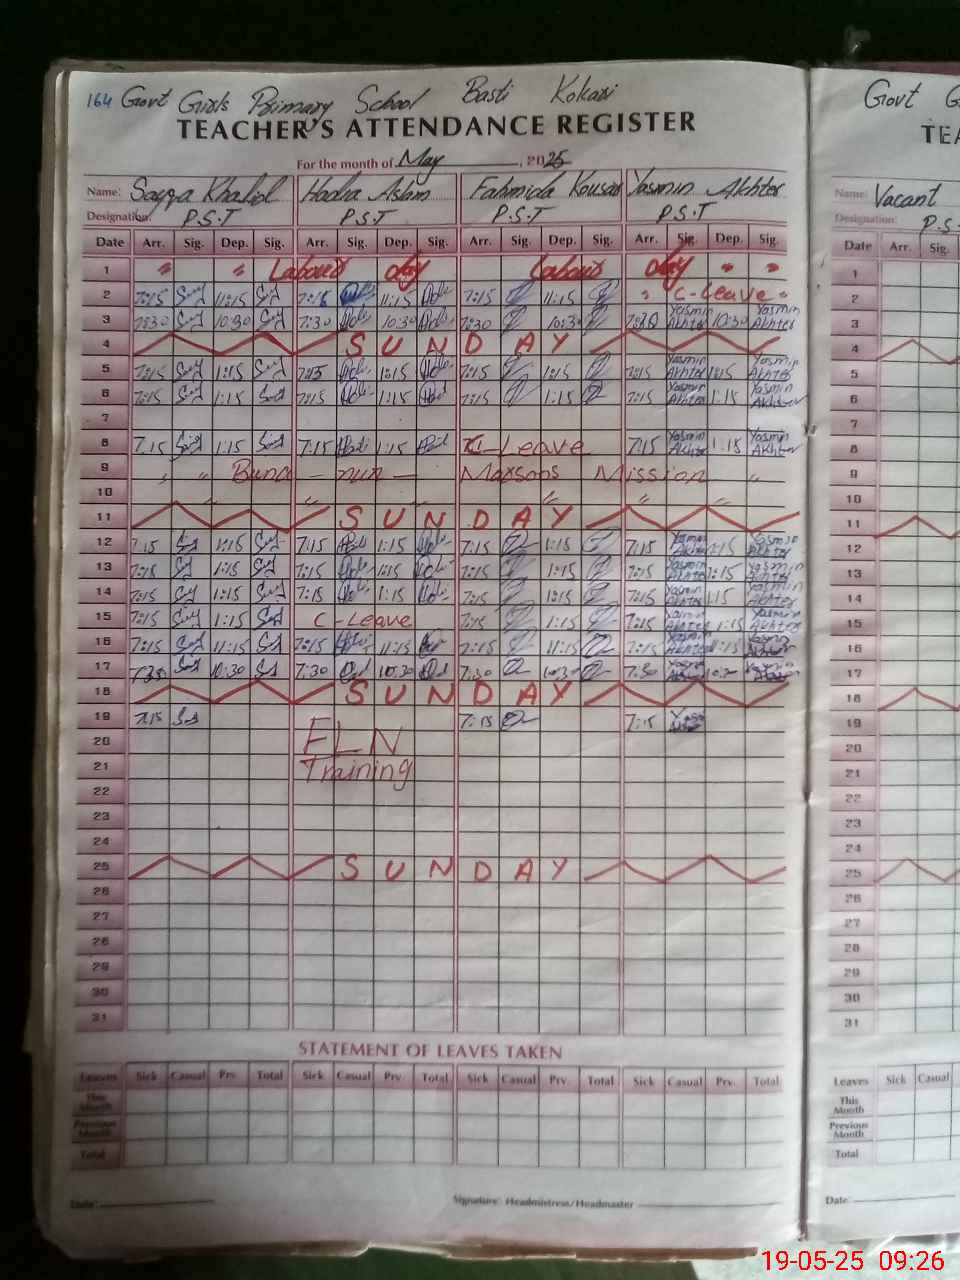 164 Govt Girls Primary School Basti Kokari
TEACHER'S ATTENDANCE REGISTER
For the month of May, 2025
Name: Sayqa Khalid Hadra Aslam Fahmida Kousar Yasmin Akhter
Designation: P.S.T P.S.T P.S.T P.S.T
Date Arr. Sig. Dep. Sig. Arr. Sig. Dep. Sig. Arr. Sig. Dep. Sig. Arr. Sig. Dep. Sig.
1 " " Labour day Labour day " "
2 7:15 11:15 7:15 11:15 7:15 11:15 " C-Leave "
3 7:30 10:30 7:30 10:30 7:30 10:30 7:30 Yasmin Akhter 10:30 Yasmin Akhter
4 SUNDAY
5 7:15 1:15 7:15 1:15 7:15 1:15 7:15 Yasmin Akhter 1:15 Yasmin Akhter
6 7:15 1:15 7:15 1:15 7:15 1:15 7:15 Yasmin Akhter 1:15 Yasmin Akhter
7
8 7:15 1:15 7:15 1:15 C-Leave 7:15 Yasmin Akhter 1:15 Yasmin Akhter
9 " " - nun - Marsoos Mission "
10 " " " "
11 SUNDAY
12 7:15 1:15 7:15 1:15 7:15 1:15 7:15 Yasmin Akhter 1:15 Yasmin Akhter
13 7:15 1:15 7:15 1:15 7:15 1:15 7:15 Yasmin Akhter 1:15 Yasmin Akhter
14 7:15 1:15 7:15 1:15 7:15 1:15 7:15 Yasmin Akhter 1:15 Yasmin Akhter
15 7:15 1:15 C-Leave 7:15 1:15 7:15 Yasmin Akhter 1:15 Yasmin Akhter
16 7:15 11:15 7:15 11:15 7:15 11:15 7:15 Yasmin Akhter 11:15 Yasmin Akhter
17 7:30 10:30 7:30 10:30 7:30 10:30 7:30 Yasmin Akhter Yasmin Akhter
18 SUNDAY
19 7:15 7:15 7:15
20 FLN
21 Training
22
23
24
25 SUNDAY
26
27
28
29
30
31
STATEMENT OF LEAVES TAKEN
Leaves Sick Casual Prv. Total Sick Casual Prv. Total Sick Casual Prv. Total Sick Casual Prv. Total
This Month
Previous Month
Total
Date: Signature: Headmistress/Headmaster
Govt G
TEA
Name: Vacant
Designation: P.S.
Date Arr. Sig.
1
2
3
4
5
6
7
8
9
10
11
12
13
14
15
16
17
18
19
20
21
22
23
24
25
26
27
28
29
30
31
Leaves Sick Casual
This Month
Previous Month
Total
Date:
19-05-25 09:26